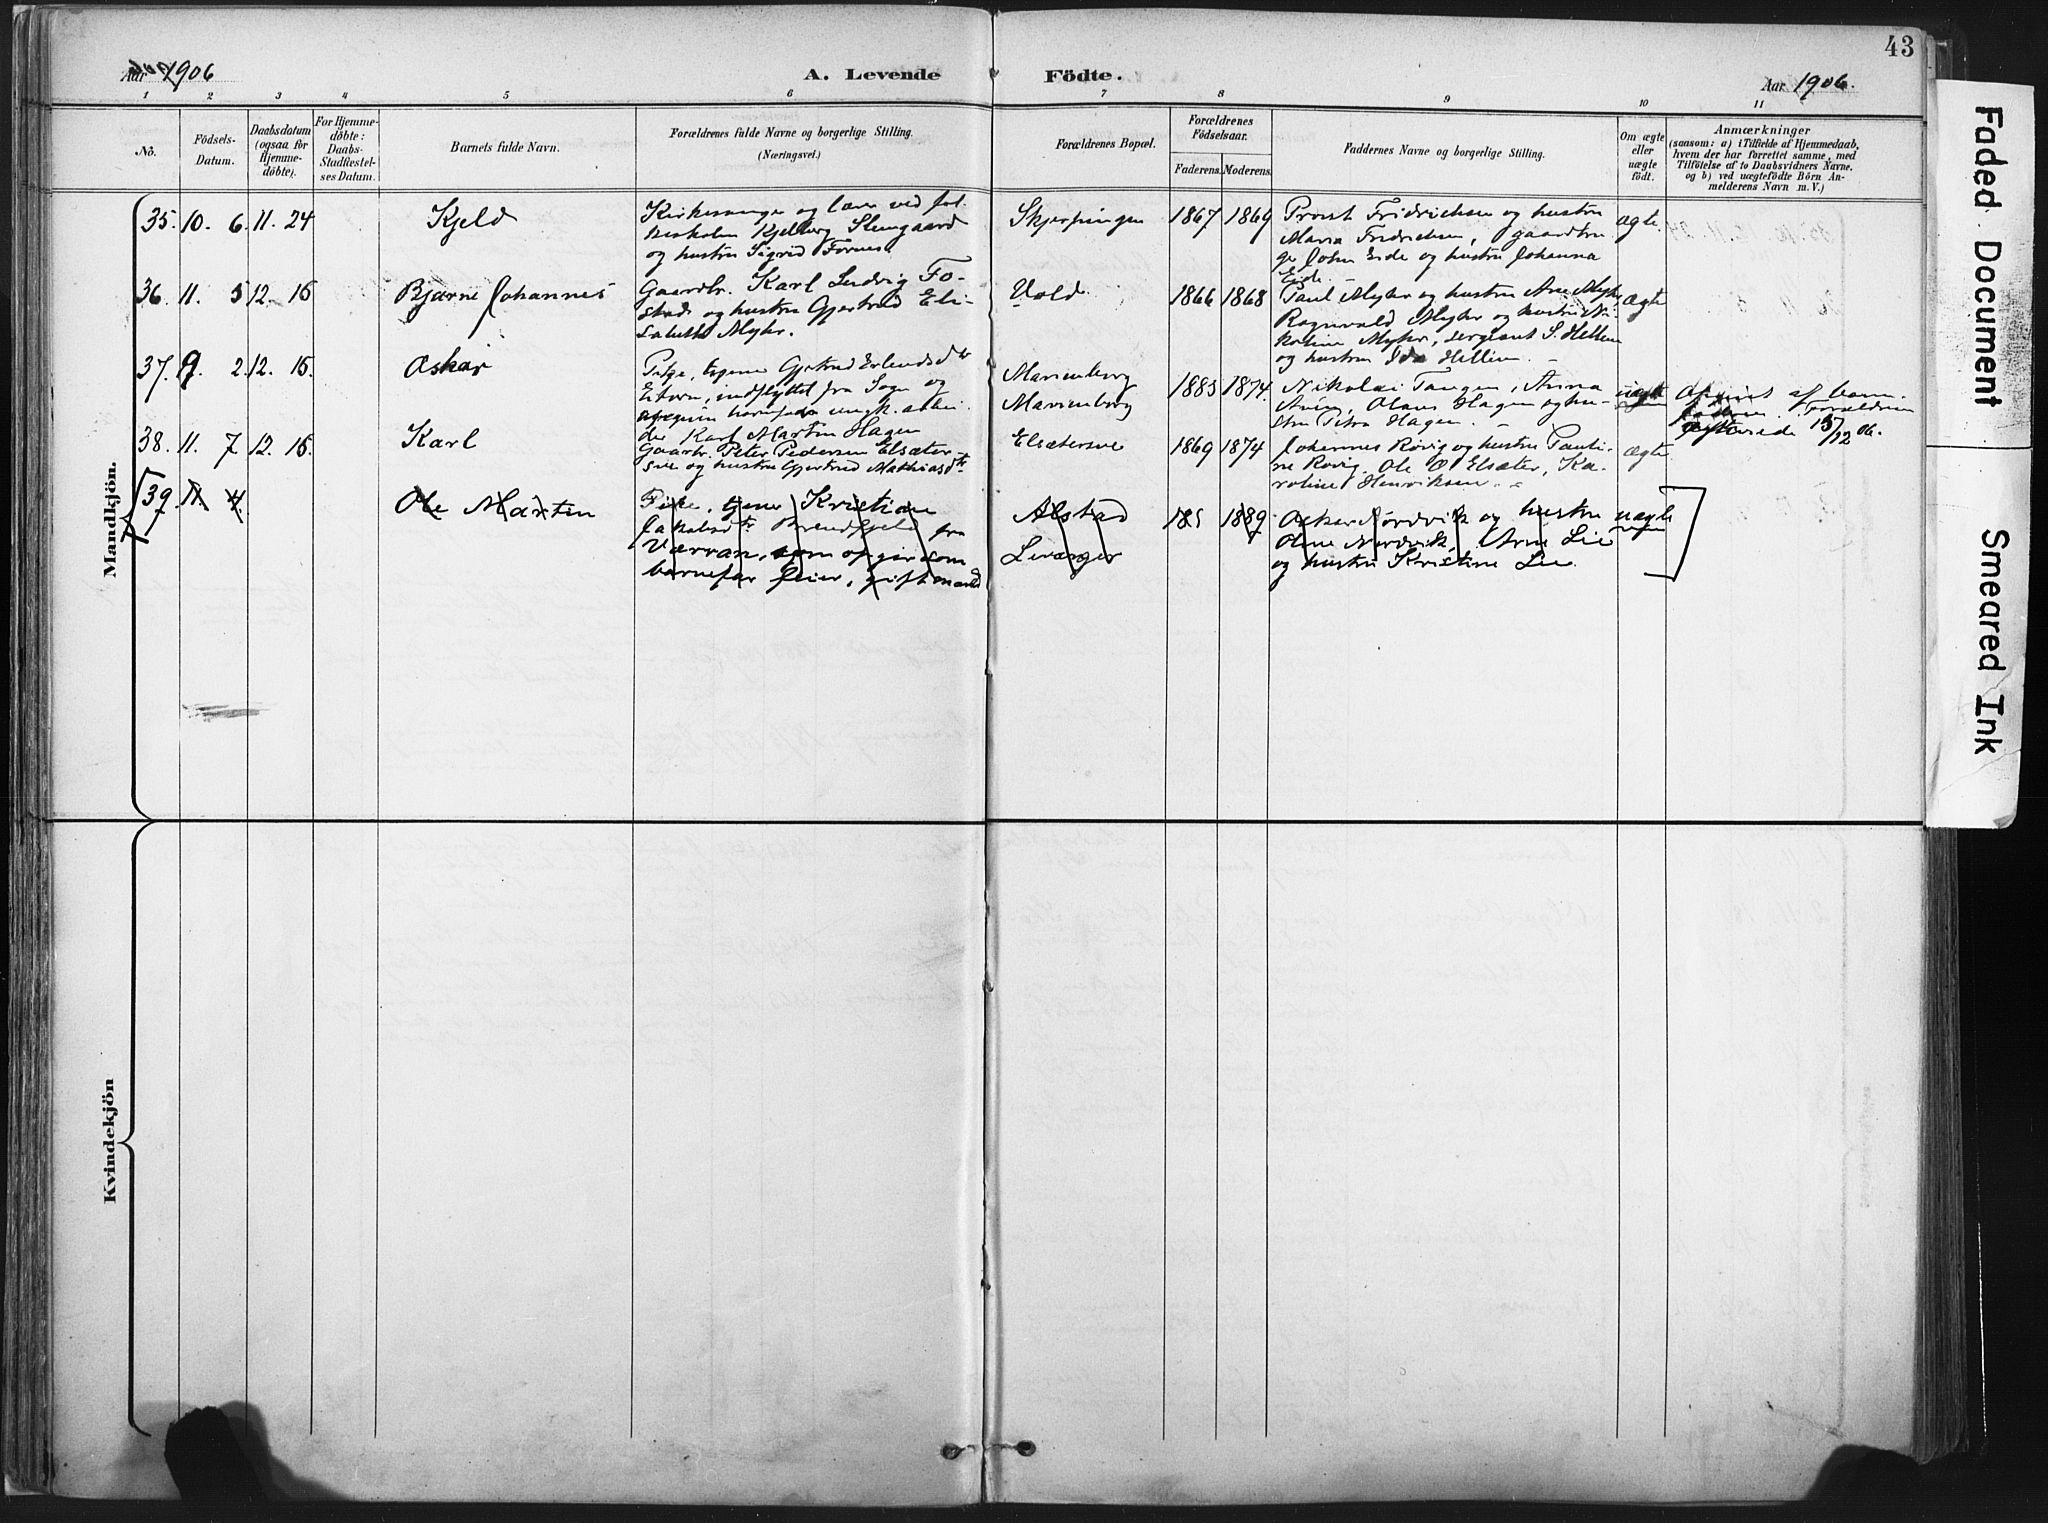 43
Aar 1906
A. Levende Födte.
Aar 1906.
1 2 3 4 5 6 7 8 9 10 11
No.
Födsels-
Datum.
Daabsdatum
(ogsaa for
Hjemme-
døbte).
For Hjemme-
døbte:
Daabs-
Stadfæstel-
ses Datum.
Barnets fulde Navn.
Forældrenes fulde Navne og borgerlige Stilling.
(Næringsvei.)
Forældrenes Bopæl.
Forældrenes
Födselsaar.
Faderens. Moderens.
Faddernes Navne og borgerlige Stilling.
Om ægte
eller
uægte
født.
Anmærkninger
(saasom: a) i Tilfælde af Hjemmedaab,
hvem der har forrettet samme, med
Tilföielse af to Daabsvidners Navne,
og b) ved uægtefödte Börn An-
melderens Navn m. V.)
Mandkjön.
35. 10. 6. 11. 24
Kjeld
Kirkesanger og lærer ved fol-
keskolen Kjelberg Stemgaard
og hustru Sigrid Fornes
Skjerpingen
1867 1869
Provst Fridrichsen og hustru
Maria Fridrichsen, gaardbru
ger John Eide og hustru Johanna
Eide.
ægte
36. 11. 5 12. 16
Bjarne Johannes
Gaardbr. Karl Ludvig Fo-
stad og hustru Gjertrud Eli-
sabeth Myhr.
Vold
1866 1868
Paul Myhr og hustru Ane Myhr
Ragnvald Myhr og hustru Ni-
koline Myhr, sergeant S. Hellem
og hustru Ida Hellem.
ægte
37. 9. 2. 12. 15.
Oskar
Pige, tjener Gjertrud Erlendsdtr
indflyttet fra Sogn og
opgiven barnefader ungk. arbei-
der Karl Martin Hagen
Marienborg
Marienborg
1885 1874.
Nikolai Tangen, Anna
Olaus Hagen og hu-
stru Petra Hagen.
uægte
Opgivet af barne-
faderen. Forældrene
giftede 15/12 06.
38. 11. 7 12. 16.
Karl
Gaardbr. Peter Pedersen Elsæter-
sve og hustru Gjertrud Mathiasdtr
Elsætersve
1869 1874
Johannes Røvig og hustru Pauli-
ne Røvig, Ole O. Elsæter, Ka-
roline Henriksen.
ægte
39. 11. 4.
Ole Martin
Pike, tjener Kristian
Jakobsdtr Brendfjeld fra
Værran, som opgir som
barnefar Feier, gift mand
Alstad
Levanger
185 1889
Oskar Nordvik og hustru
Oline Nordvik, Arne Lie
og hustru Kristine Lie.
uægte
Kvindekjön
Faded Document
Smeared Ink